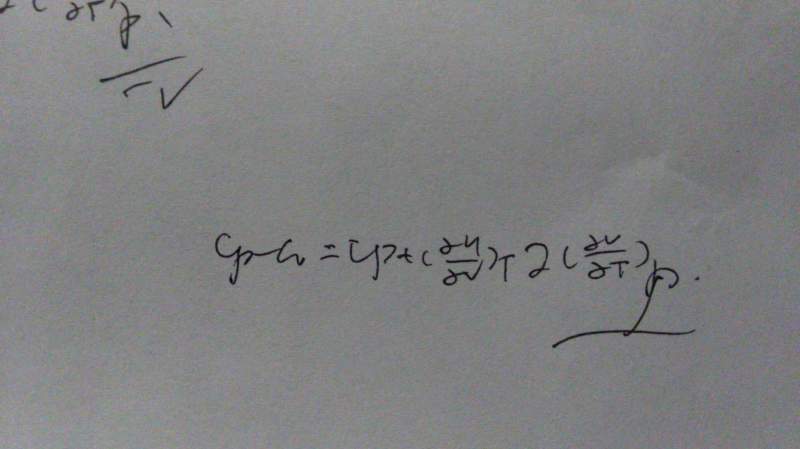 (∂T)p.
Cp-Cv = [p+(∂U/∂V)T](∂V/∂T)p.